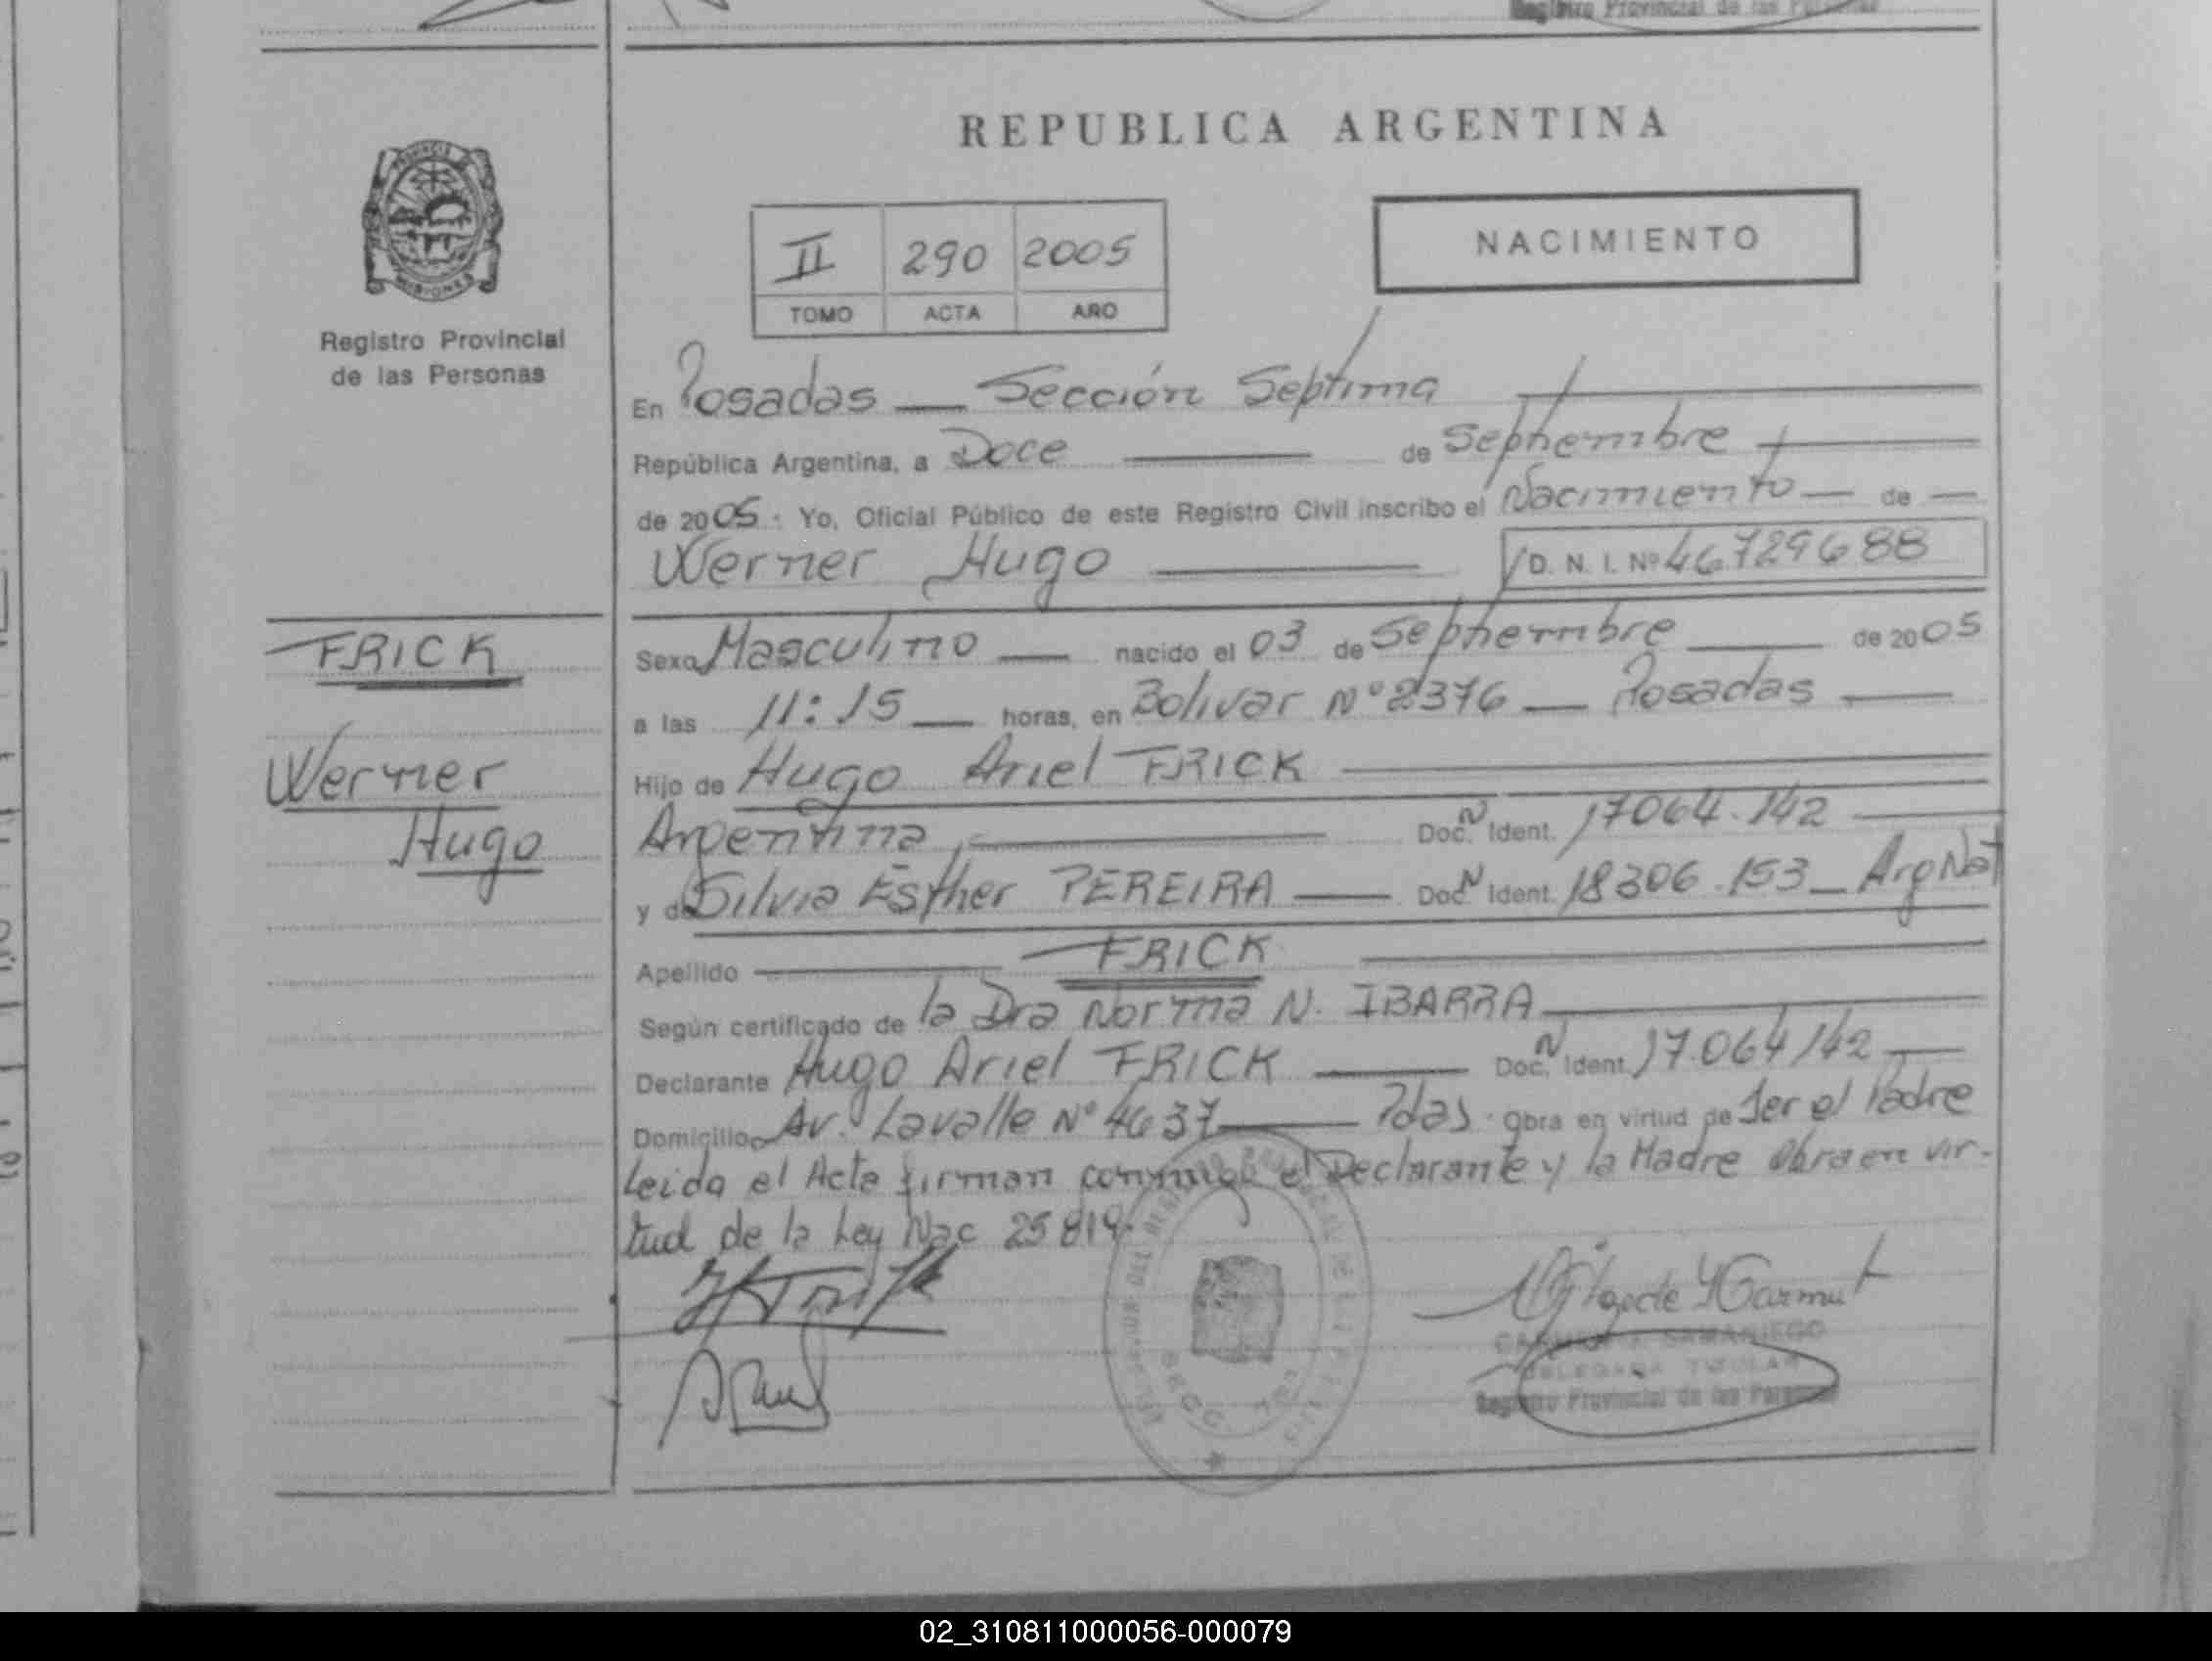 Registro Provincial de las Personas
REPUBLICA ARGENTINA
PROVINCIA DE
MISIONES
Registro Provincial
de las Personas
II 290 2005
TOMO ACTA AÑO
NACIMIENTO
En Posadas — Sección Septima
República Argentina, a Doce de Septiembre
de 2005. Yo, Oficial Público de este Registro Civil inscribo el Nacimiento — de —
Werner Hugo D. N. I. Nº 46729688
FRICK
Werner
Hugo
Sexo Masculino — nacido el 03 de Septiembre de 2005
a las 11:15 — horas, en Bolivar Nº 2376 — Posadas
Hijo de Hugo Ariel FRICK
Argentina Doc. N Ident. 17064.142
y de Silvia Esther PEREIRA — Doc. N Ident. 18306.153 _ Arg Nat
Apellido FRICK
Según certificado de la Dra Norma N. IBARRA
Declarante Hugo Ariel FRICK Doc. N Ident. 17.064142
Domicilio Av. Lavalle Nº 4637 Pdas. Obra en virtud de Ser el Padre
Leida el Acta firman conmigo el Declarante y la Madre Obra en vir-
tud de la Ley Nac 25819.
SAMANIEGO
DELEGADA TITULAR
Registro Provincial de las Personas
02_310811000056-000079